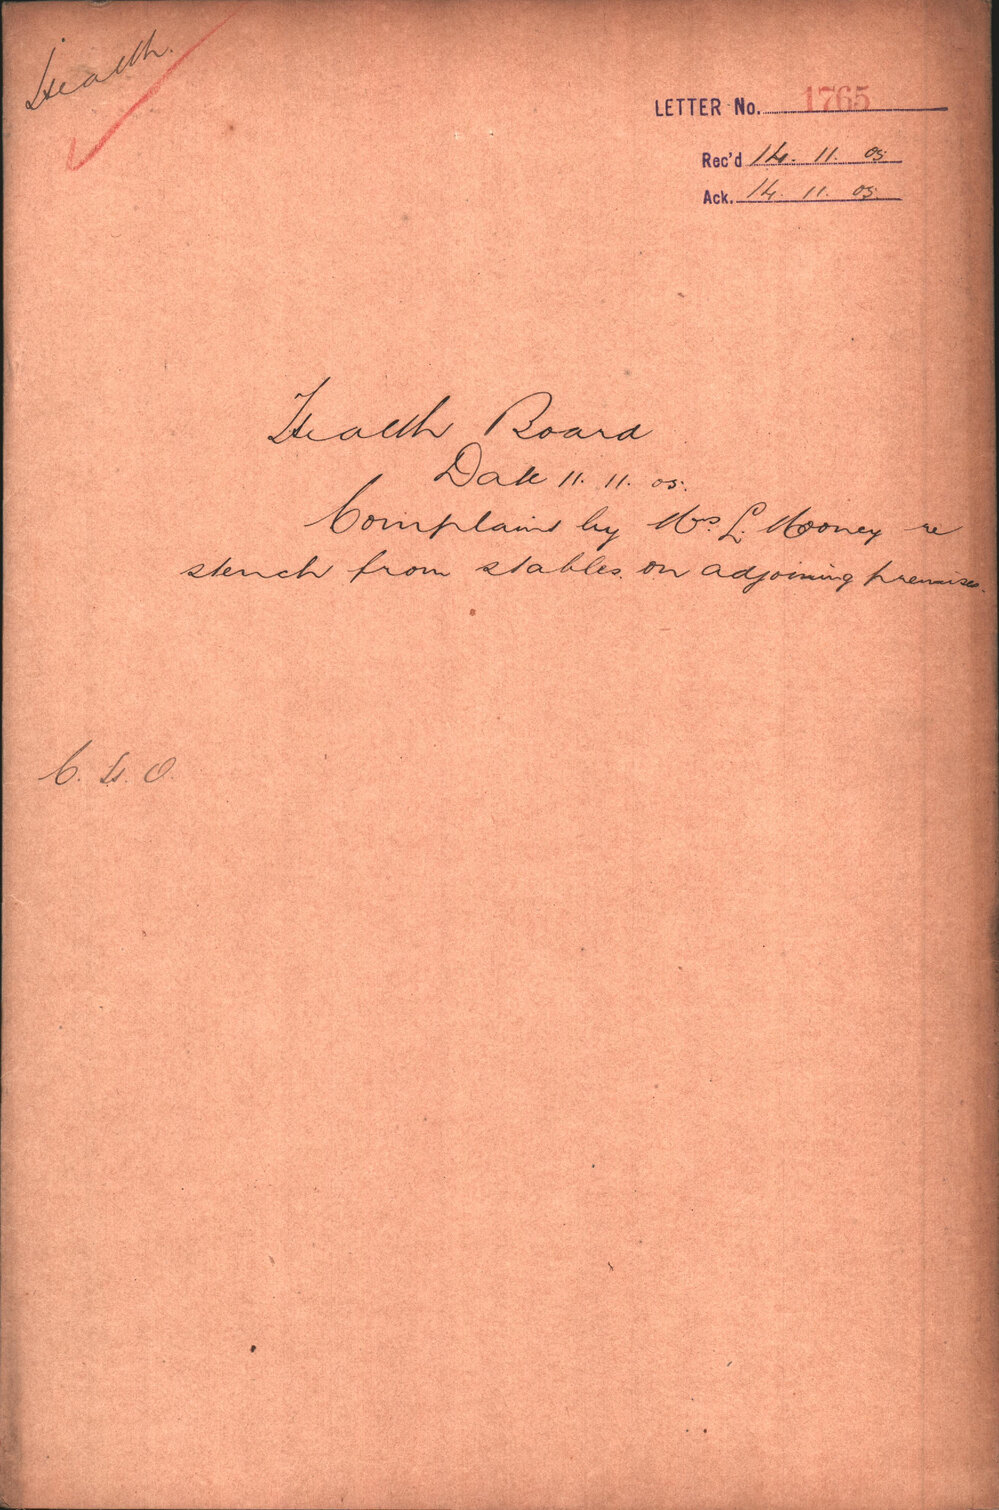 Health.
LETTER No. 1765
Rec'd 14. 11. 05
Ack. 14. 11. 05.
Health Board
Date 11. 11. 05.
Complains by Mrs. L. Mooney re
stench from stables on adjoining premises.
C. H. O.